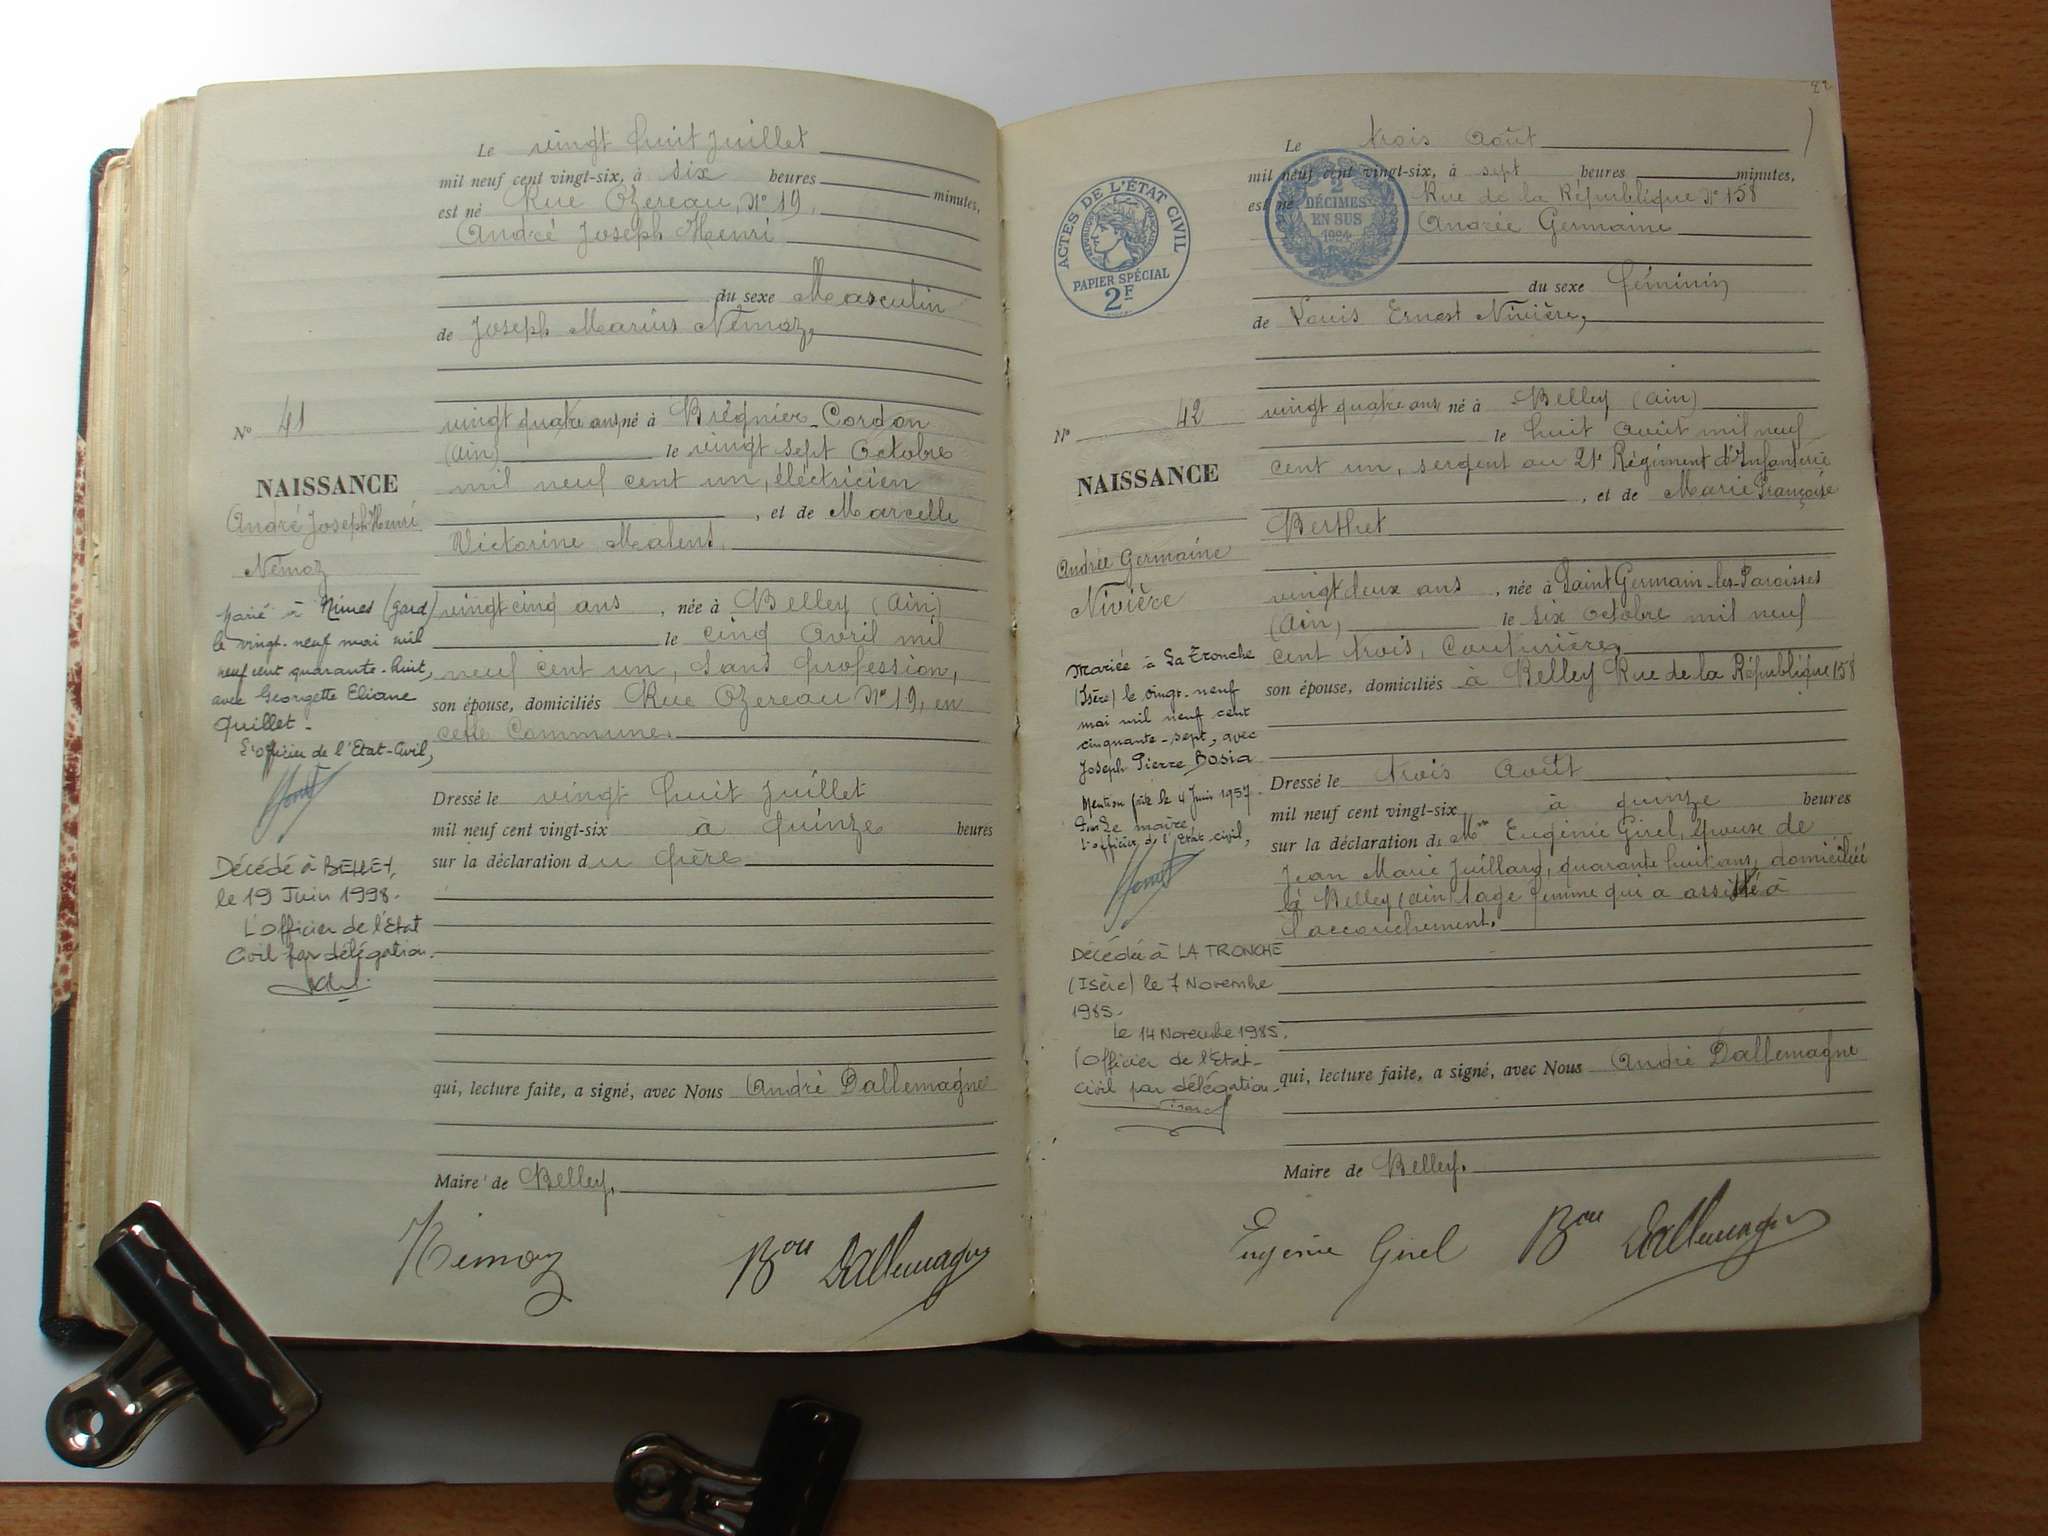 Le vingt huit Juillet
mil neuf cent vingt-six, à six heures minutes,
est né Rue Ozereau, N° 19,
André Joseph Henri
du sexe Masculin
de Joseph Marius Némoz,
N° 41
vingt quatre ans, né à Brégnier-Cordon
(Ain) le vingt sept Octobre
mil neuf cent un, électricien
, et de Marcelle
Victorine
NAISSANCE
André Joseph Henri
Némoz
vingt cinq ans, née à Belley (Ain)
le cinq Avril mil
neuf cent un, sans profession,
son épouse, domiciliés Rue Ozereau N° 19, en
cette Commune.
Marié à Nimes (Gard)
le vingt-neuf mai mil
neuf cent quarante-huit,
avec Georgette Eliane
Quillet-
L'officier de l'Etat-Civil,
Dressé le vingt huit Juillet
mil neuf cent vingt-six à quinze heures
sur la déclaration du père
Décédé à BELLEY,
le 19 Juin 1998.
L'Officier de l'Etat
Civil par délégation.
qui, lecture faite, a signé, avec Nous André Dallemagne
Maire de Belley,
Némoz Bon Dallemagne
82
Le trois Août
mil neuf cent vingt-six, à sept heures minutes,
est né Rue de la République N° 158
Andrée Germaine
ACTES DE L'ÉTAT CIVIL
PAPIER SPÉCIAL
2F
2
DÉCIMES
EN SUS
1924
du sexe féminin
de Louis Ernest Nivière,
N° 42
vingt quatre ans né à Belley (Ain)
le huit Août mil neuf
cent un, sergent au 21e Régiment d'Infanterie
, et de Marie Françoise
Berthet
NAISSANCE
Andrée Germaine
Nivière
vingt deux ans, née à Saint Germain-les-Paroisses
(Ain) le six Octobre mil neuf
cent trois, Couturière,
son épouse, domiciliés à Belley Rue de la République 158
Mariée à La Tronche
(Isère) le vingt-neuf
mai mil neuf cent
cinquante-sept, avec
Joseph Pierre Bosia
Mention faite le 4 Juin 1957.
Le maire,
l'officier de l'Etat-civil,
Dressé le trois Août
mil neuf cent vingt-six, à quinze heures
sur la déclaration de Mme Eugénie Girel, épouse de
Jean Marie Juillard, quarante huit ans, domiciliée
à Belley (Ain) sage femme qui a assisté à
l'accouchement.
Décédée à LA TRONCHE
(Isère) le 7 Novembre
1985.
Le 14 Novembre 1985.
l'Officier de l'Etat-
Civil par délégation.
qui, lecture faite, a signé, avec Nous André Dallemagne
Maire de Belley.
Eugénie Girel Bon Dallemagne